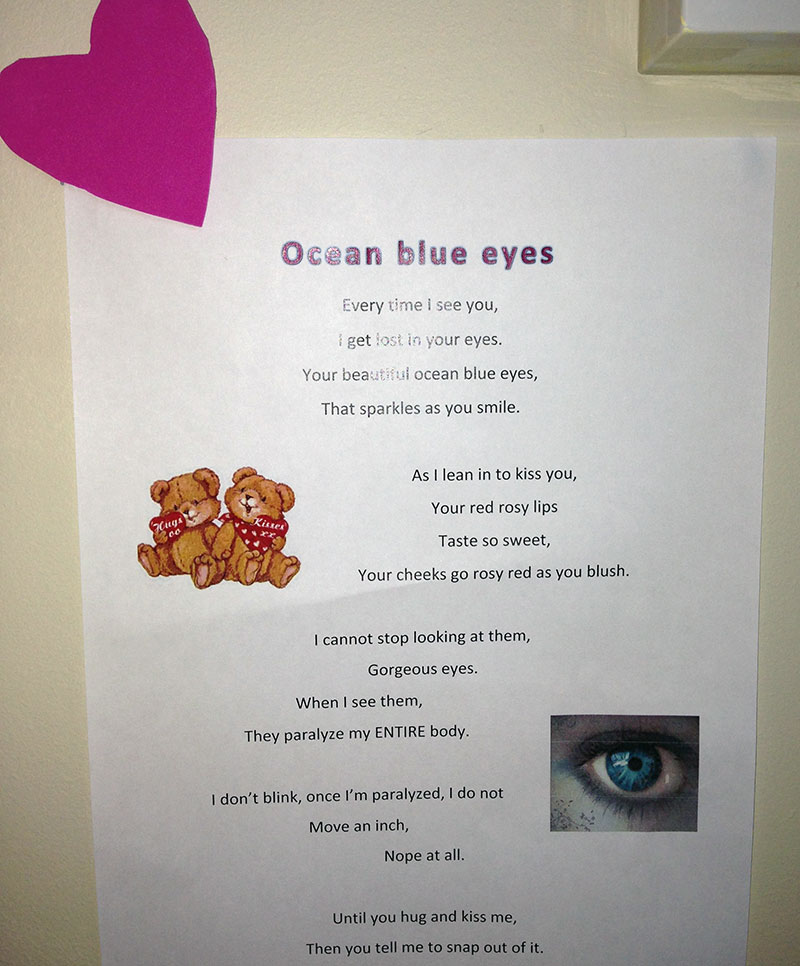 Ocean blue eyes
Every time I see you,
I get lost in your eyes.
Your beautiful ocean blue eyes,
That sparkles as you smile.
As I lean in to kiss you,
Your red rosy lips
Taste so sweet,
Your cheeks go rosy red as you blush.
Hugs
oo
Kisses
xx
I cannot stop looking at them,
Gorgeous eyes.
When I see them,
They paralyze my ENTIRE body.
I don't blink, once I'm paralyzed, I do not
Move an inch,
Nope at all.
Until you hug and kiss me,
Then you tell me to snap out of it.